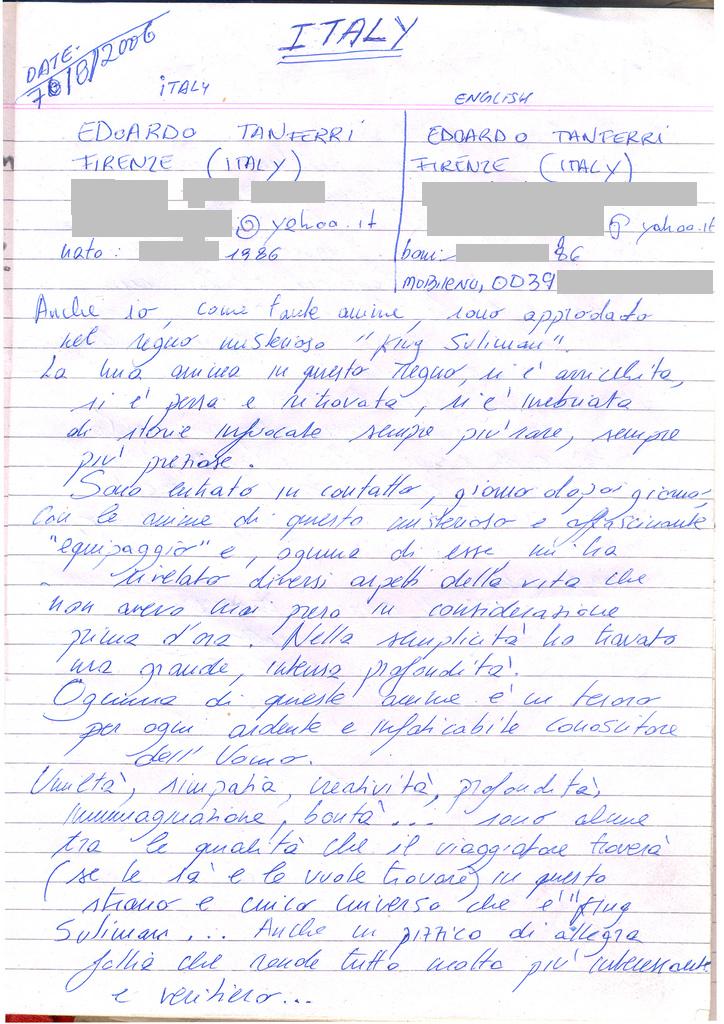 ITALY
DATE-
7018/2006
iTALY
ENGLISH
EDOARDO TANFERRI
FIRENZE (ITALY)
@ yahoo.it
nato: 1986
EDOARDO TANFERRI
FIRENZE (ITALY)
@ yahoo.it
born: 86
MOBILENU, 0039
Anche io, come tante anime, sono approdato
nel regno misterioso "King Suliman".
La mia anima in questo Regno, si è arricchita,
si è persa e ritrovata, si è inebriata
di storie infuocate sempre più rare, sempre
più preziose.
Sono entrato in contatto, giorno dopo giorno,
con le anime di questo misterioso e affascinante
"equipaggio" e, ognuna di esse, mi ha
rivelato diversi aspetti della vita che
non avevo mai preso in considerazione
prima d'ora. Nella semplicità ho trovato
una grande, intensa profondità.
Ognuna di queste anime è un tesoro
per ogni ardente e infaticabile conoscitore
dell'Uomo.
Umiltà, simpatia, creatività, profondità,
immaginazione, bontà... sono alcune
tra le qualità che il viaggiatore troverà
(se le sà e le vuole trovare) in questo
strano e unico universo che è "King
Suliman... Anche un pizzico di allegra
follia che rende tutto molto più interessante
e veritiero...